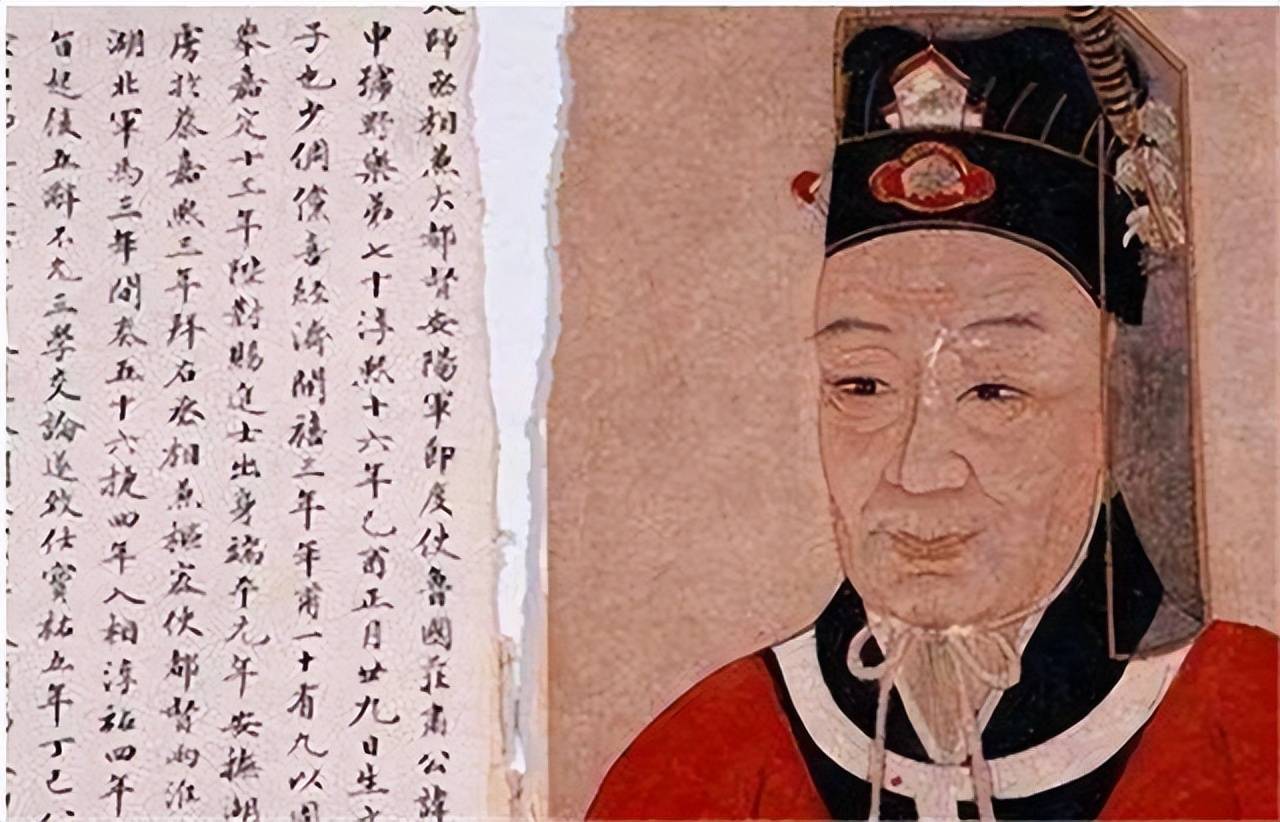 師丞相兼大都督安陽軍節度使魯國莊肅公諱
申號野樂弟七十淳熙十六年己酉正月廿九日生
子也少倜儻喜經濟開禧三年年甫一十有九以國
舉嘉定十三年陛對賜進士出身端平元年安撫湖
虜於蔡嘉熙三年拜右丞相兼樞密使都督兩淮
湖北軍馬三年間奏五十六捷四年入相淳祐四年
旨起復五辭不允三學交論遂致仕寶祐五年丁巳八